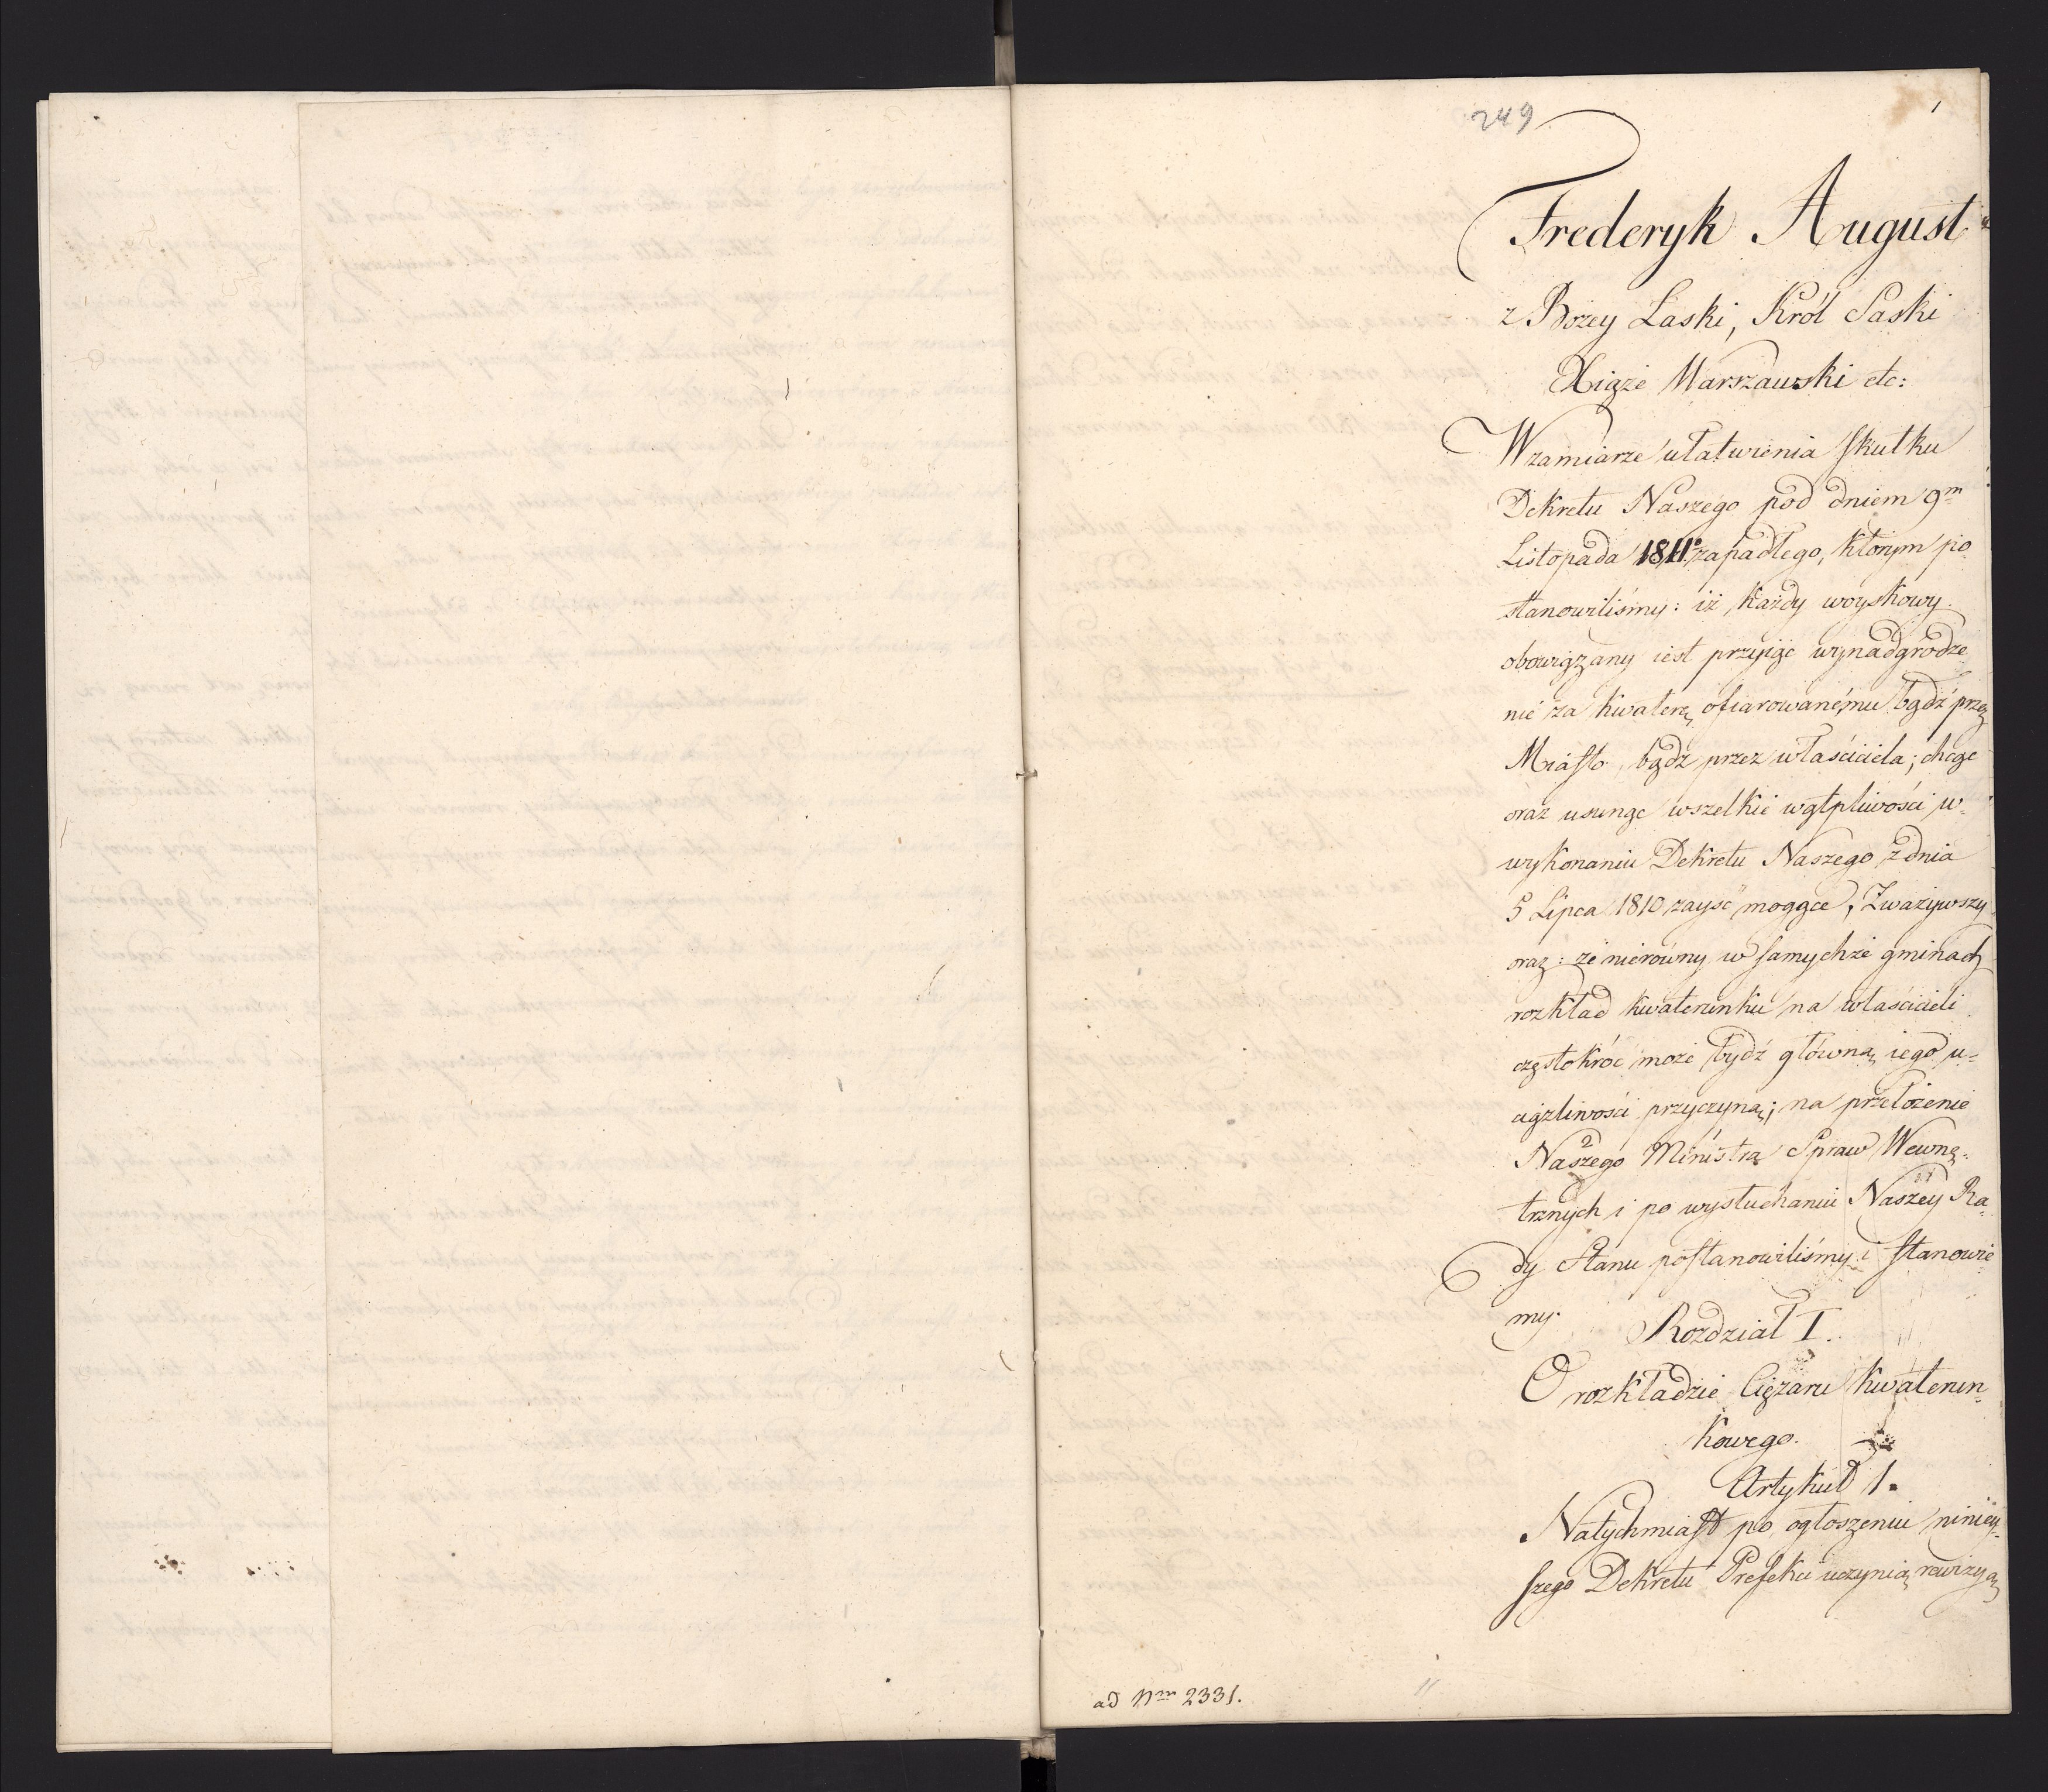 249
1
Frederyk August
z Bożey Łaski, Król Saski
Xiąże Warszawski etc:
W zamiarze ułatwienia skutku
Dekretu Naszego pod dniem 9m
Listopada 1811. zapadłego, którym po
stanowiliśmy: iż każdy woyskowy
obowiązany iest przyiąc wynadgrodze
nie za kwaterę ofiarowane mu bądź przez
Miasto, bądź przez właściciela; chcąc
oraz usunąc wszelkie wątpliwości w
wykonaniu Dekretu Naszego z dnia
5 Lipca 1810 zayść mogące, Zważywszy
oraz: że nierówny w samychże gminach
rozkład kwaterunku na właścicieli
częstokróc może bydź główną iego u-
ciążliwości przyczyną; na przełożenie
Naszego Ministra Spraw Wewnę-
trznych i po wysłuchaniu Naszey Ra-
dy Stanu postanowiliśmy i stanowie-
my.
Rozdział I.
O rozkładzie Ciężaru kwaterun-
kowego.
Artykuł 1.
Natychmiast po ogłoszeniu niniey-
szego Dekretu Prefekci uczynią rewizyą
ad Nrm 2331.